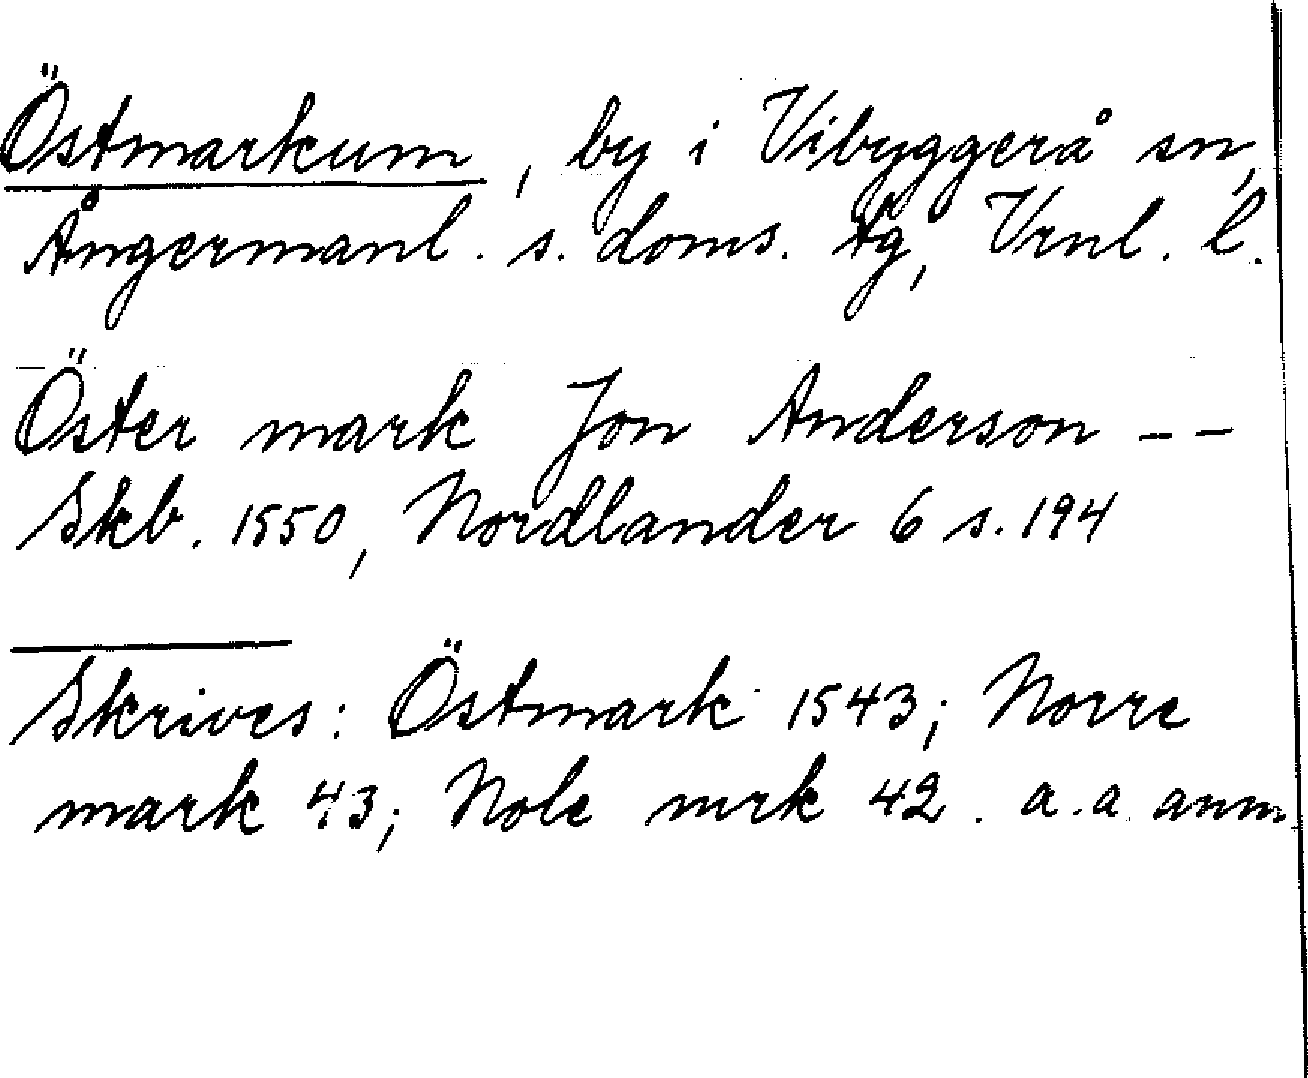 Östmarkum, by i Vibyggerå sn,
Ångermanl. s. doms. tg, Vrnl. l.
Öster mark Jon Anderson --
Skb. 1550, Nordlander 6 s. 194
Skrives: Östmark 1543; Norre
mark 43; Nole mrk 42. a.a. anm.